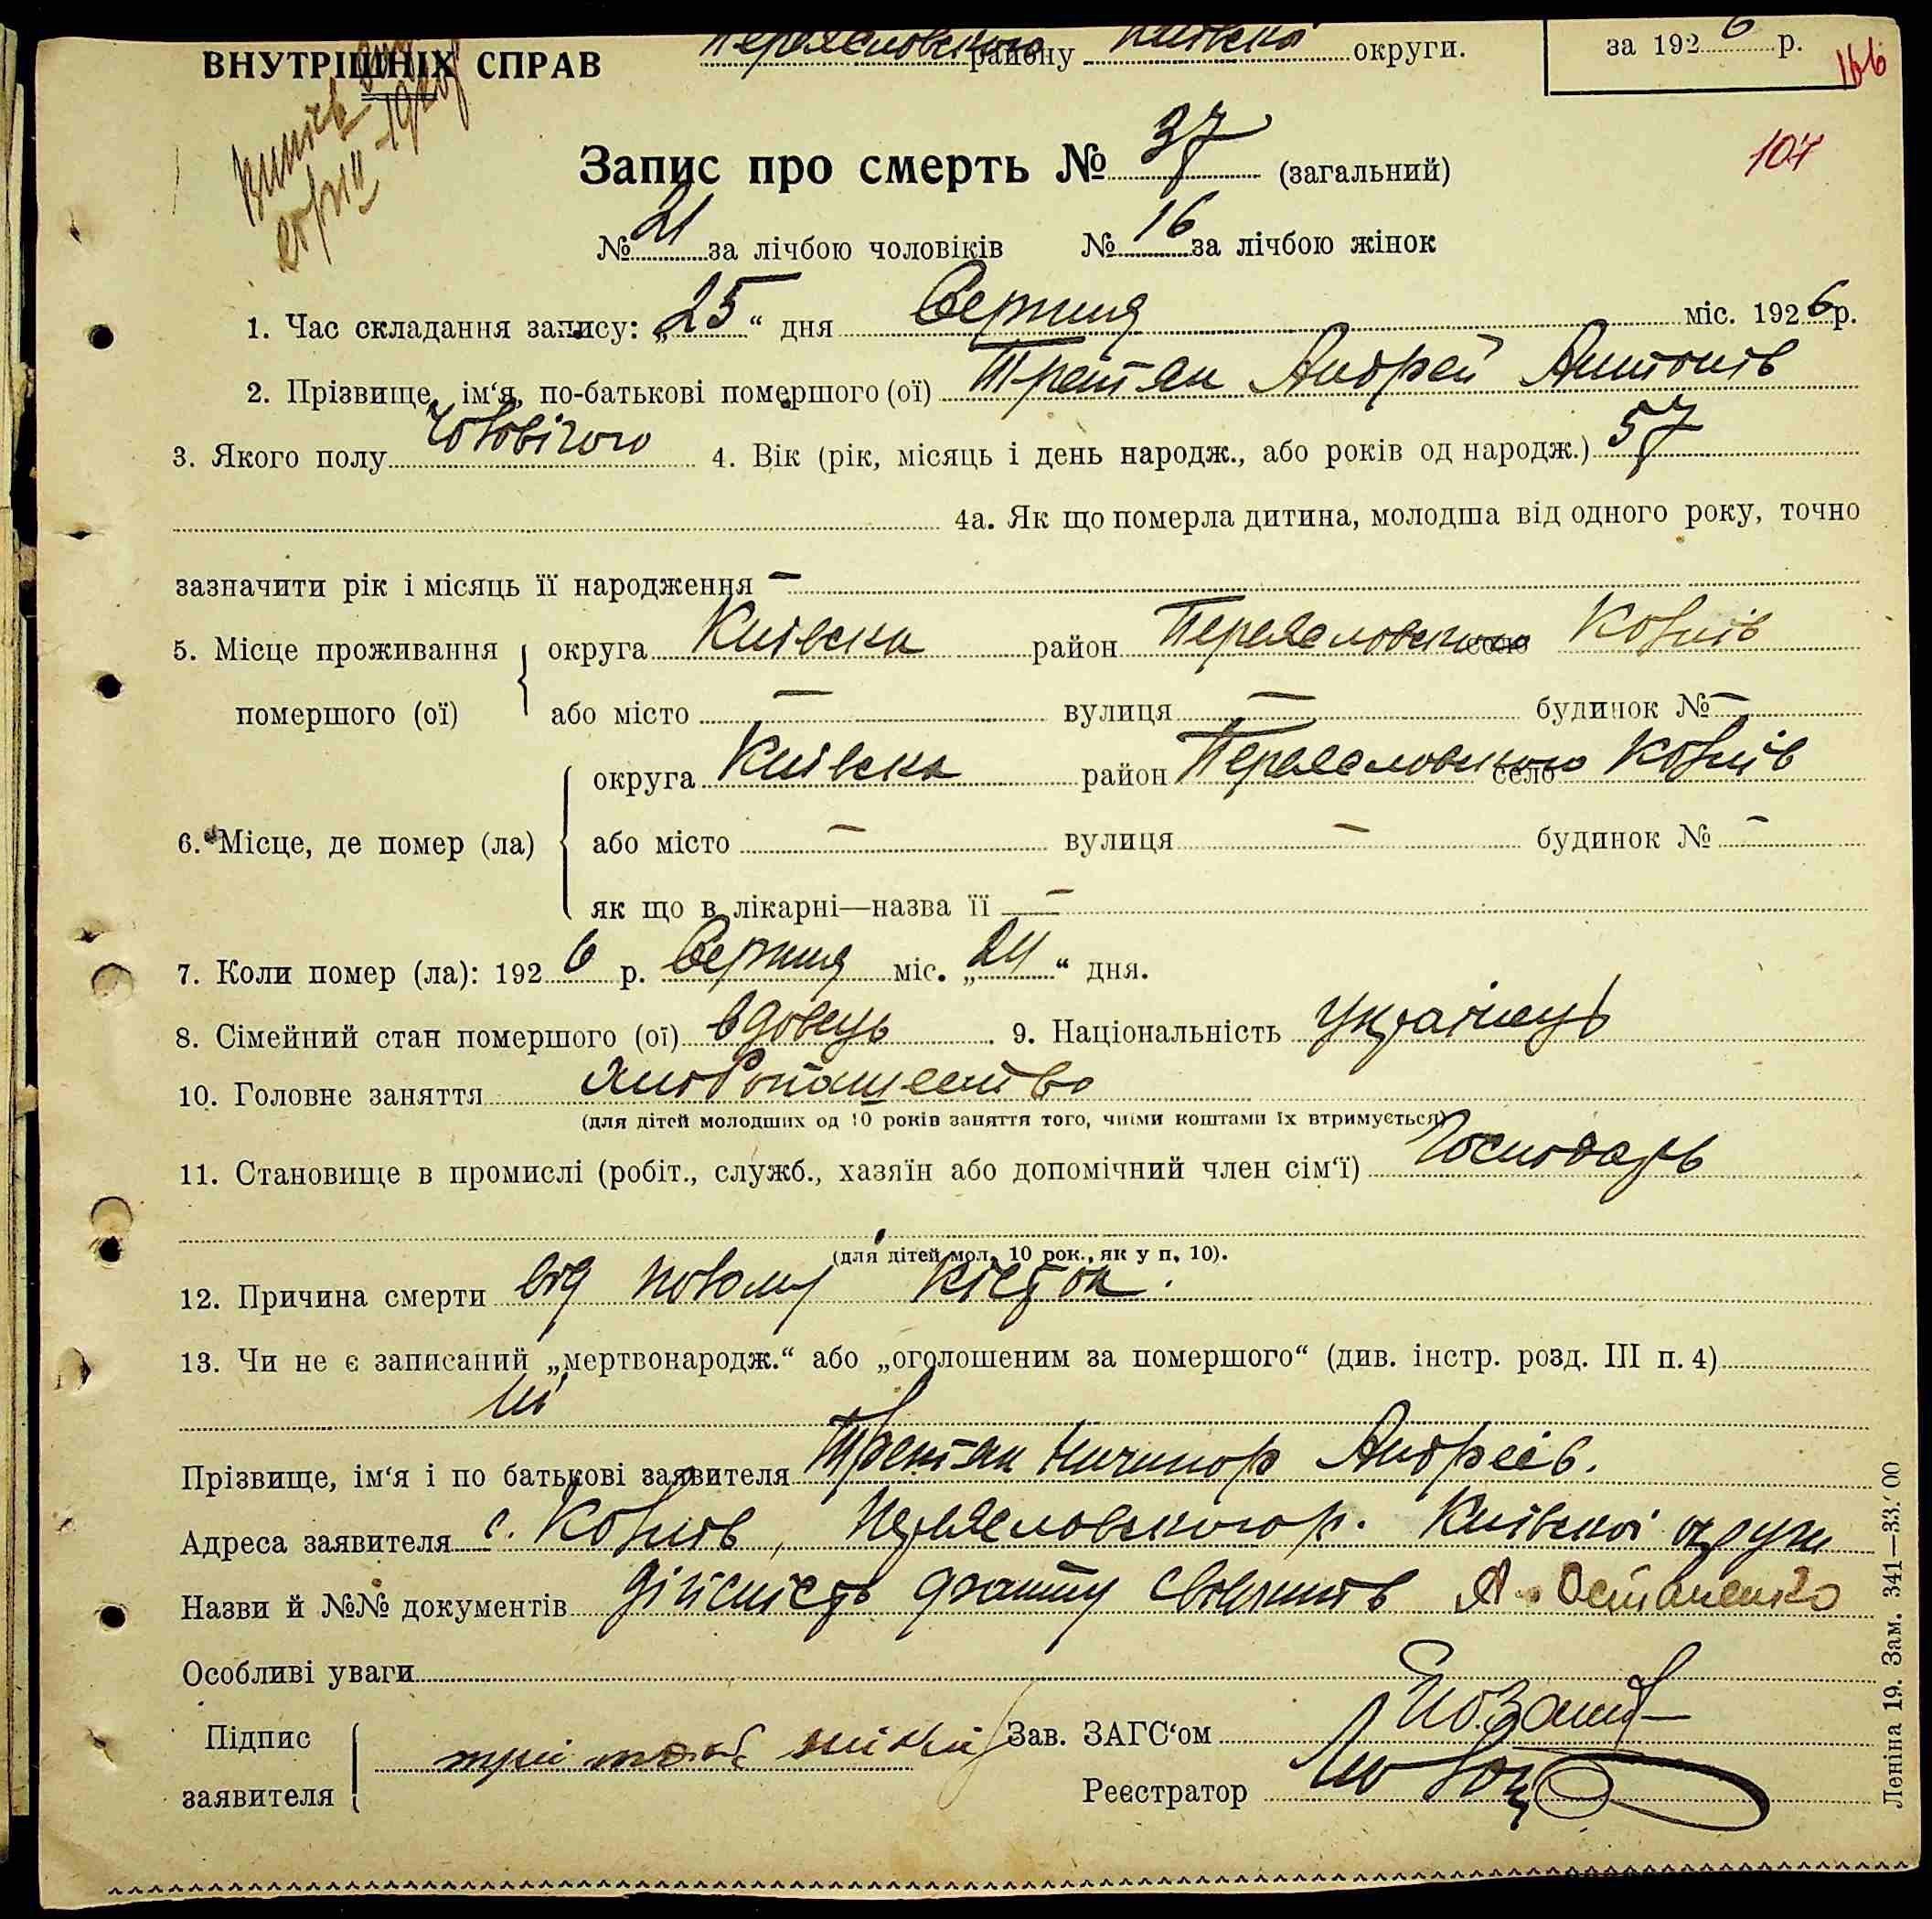 ВНУТРІШНІХ СПРАВ Переяславского району Київска округи. за 1926 р.
166
107
Запис про смерть № 37 (загальний)
№ 21 за лічбою чоловіків № 16 за лічбою жінок
1. Час складання запису: „25“ дня Серпня міс. 1926 р.
2. Прізвище, ім‘я, по-батькові помершого (ої) Третяк Андрей Антонів
3. Якого полу чоловічого 4. Вік (рік, місяць і день народж., або років од народж.) 57
4а. Як що померла дитина, молодша від одного року, точно
зазначити рік і місяць її народження —
5. Місце проживання помершого (ої) округа Київска район Переясловского село Ковалів
або місто — вулиця — будинок № —
6. Місце, де помер (ла) округа Київска район Переясловского село Ковалів
або місто — вулиця — будинок № —
як що в лікарні—назва її —
7. Коли помер (ла): 1926 р. Серпня міс. „24“ дня.
8. Сімейний стан помершого (ої) вдовець. 9. Національність Українець
10. Головне заняття хлібопашество
(для дітей молодших од 10 років заняття того, чиїми коштами їх втримується)
11. Становище в промислі (робіт., служб., хазяїн або допомічний член сім‘ї) Господарь
(для дітей мол. 10 рок., як у п. 10).
12. Причина смерти від
13. Чи не є записаний „мертвонародж.“ або „оголошеним за помершого“ (див. інстр. розд. III п. 4)
ні
Прізвище, ім‘я і по батькові заявителя Третяк Ничипор Андреєів.
Адреса заявителя с. Ковалів, Переясловского р. Київскої округи
Назви й №№ документів дійсність факту А. Остапенко
Особливі уваги
Підпис заявителя Зав. ЗАГС‘ом
Реєстратор
Леніна 19. Зам. 341—33.000